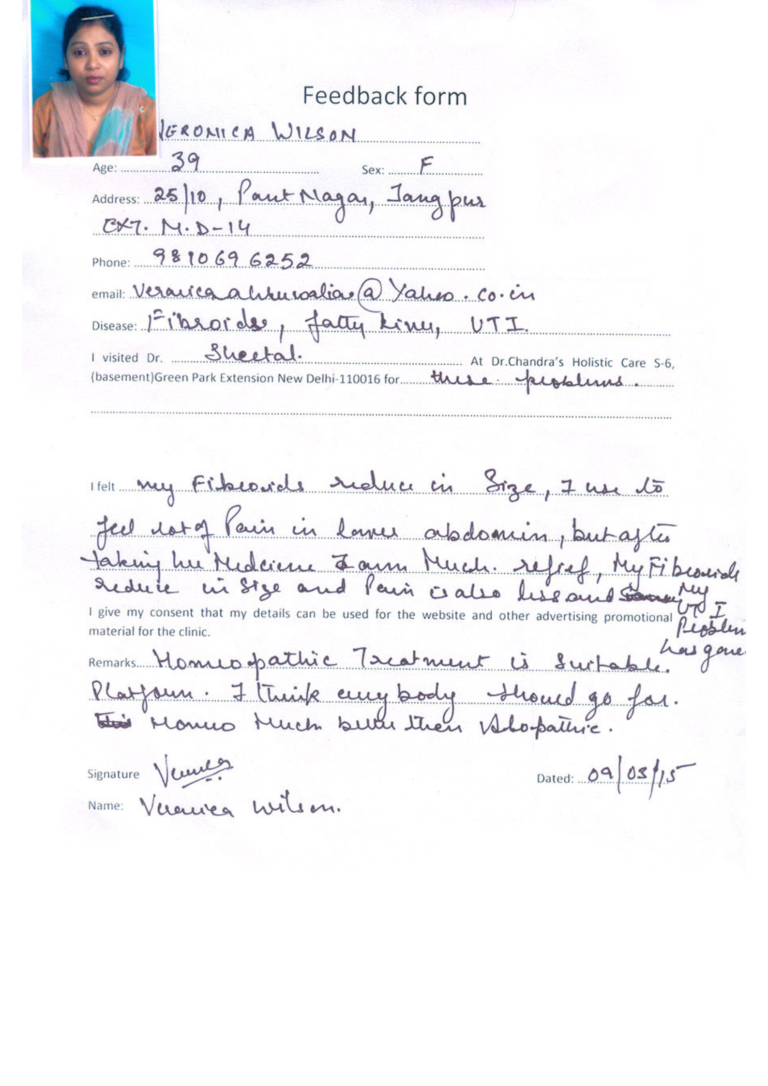 Feedback form
VERONICA WILSON
Age: 39 Sex: F
Address: 25/10, Pant Nagar, Jangpur
EXT. N.D-14
Phone: 9810696252
email: Veronicaahluwalia@Yahoo.co.in
Disease: Fibroids, fatty liver, UTI.
I visited Dr. Sheetal. At Dr.Chandra's Holistic Care S-6,
(basement)Green Park Extension New Delhi-110016 for these problems.
I felt my Fibroids reduce in Size, I use to
feel lot of Pain in lower abdomin, but after
taking her Medicine I am Much. relief, My Fibroids
reduce in Size and Pain is also less and My
I give my consent that my details can be used for the website and other advertising promotional UTI
material for the clinic. Problem
has gone
Remarks.. Homeopathic Treatment is Suitable.
Platform. I think every body should go for.
Homeo Much better then Alopathic.
Signature Dated: 09/03/15
Name: Veronica Wilson.